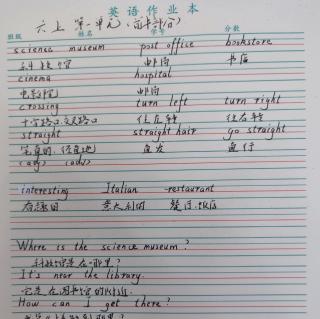 英语作业本
六上 第一单元
班级 姓名 学号 分数
science museum post office bookstore
科技馆 邮局 书店
cinema hospital
电影院 邮局
crossing turn left turn right
十字路口 往左转 往右转
straight straight hair go straight
笔直的, 径直地 直发 直行
(adj) (adv)
interesting Italian restaurant
有趣的 意大利的 餐厅.饭店
Where is the science museum?
科技馆在哪里?
It's near the library.
它在图书馆的附近.
How can I get there?